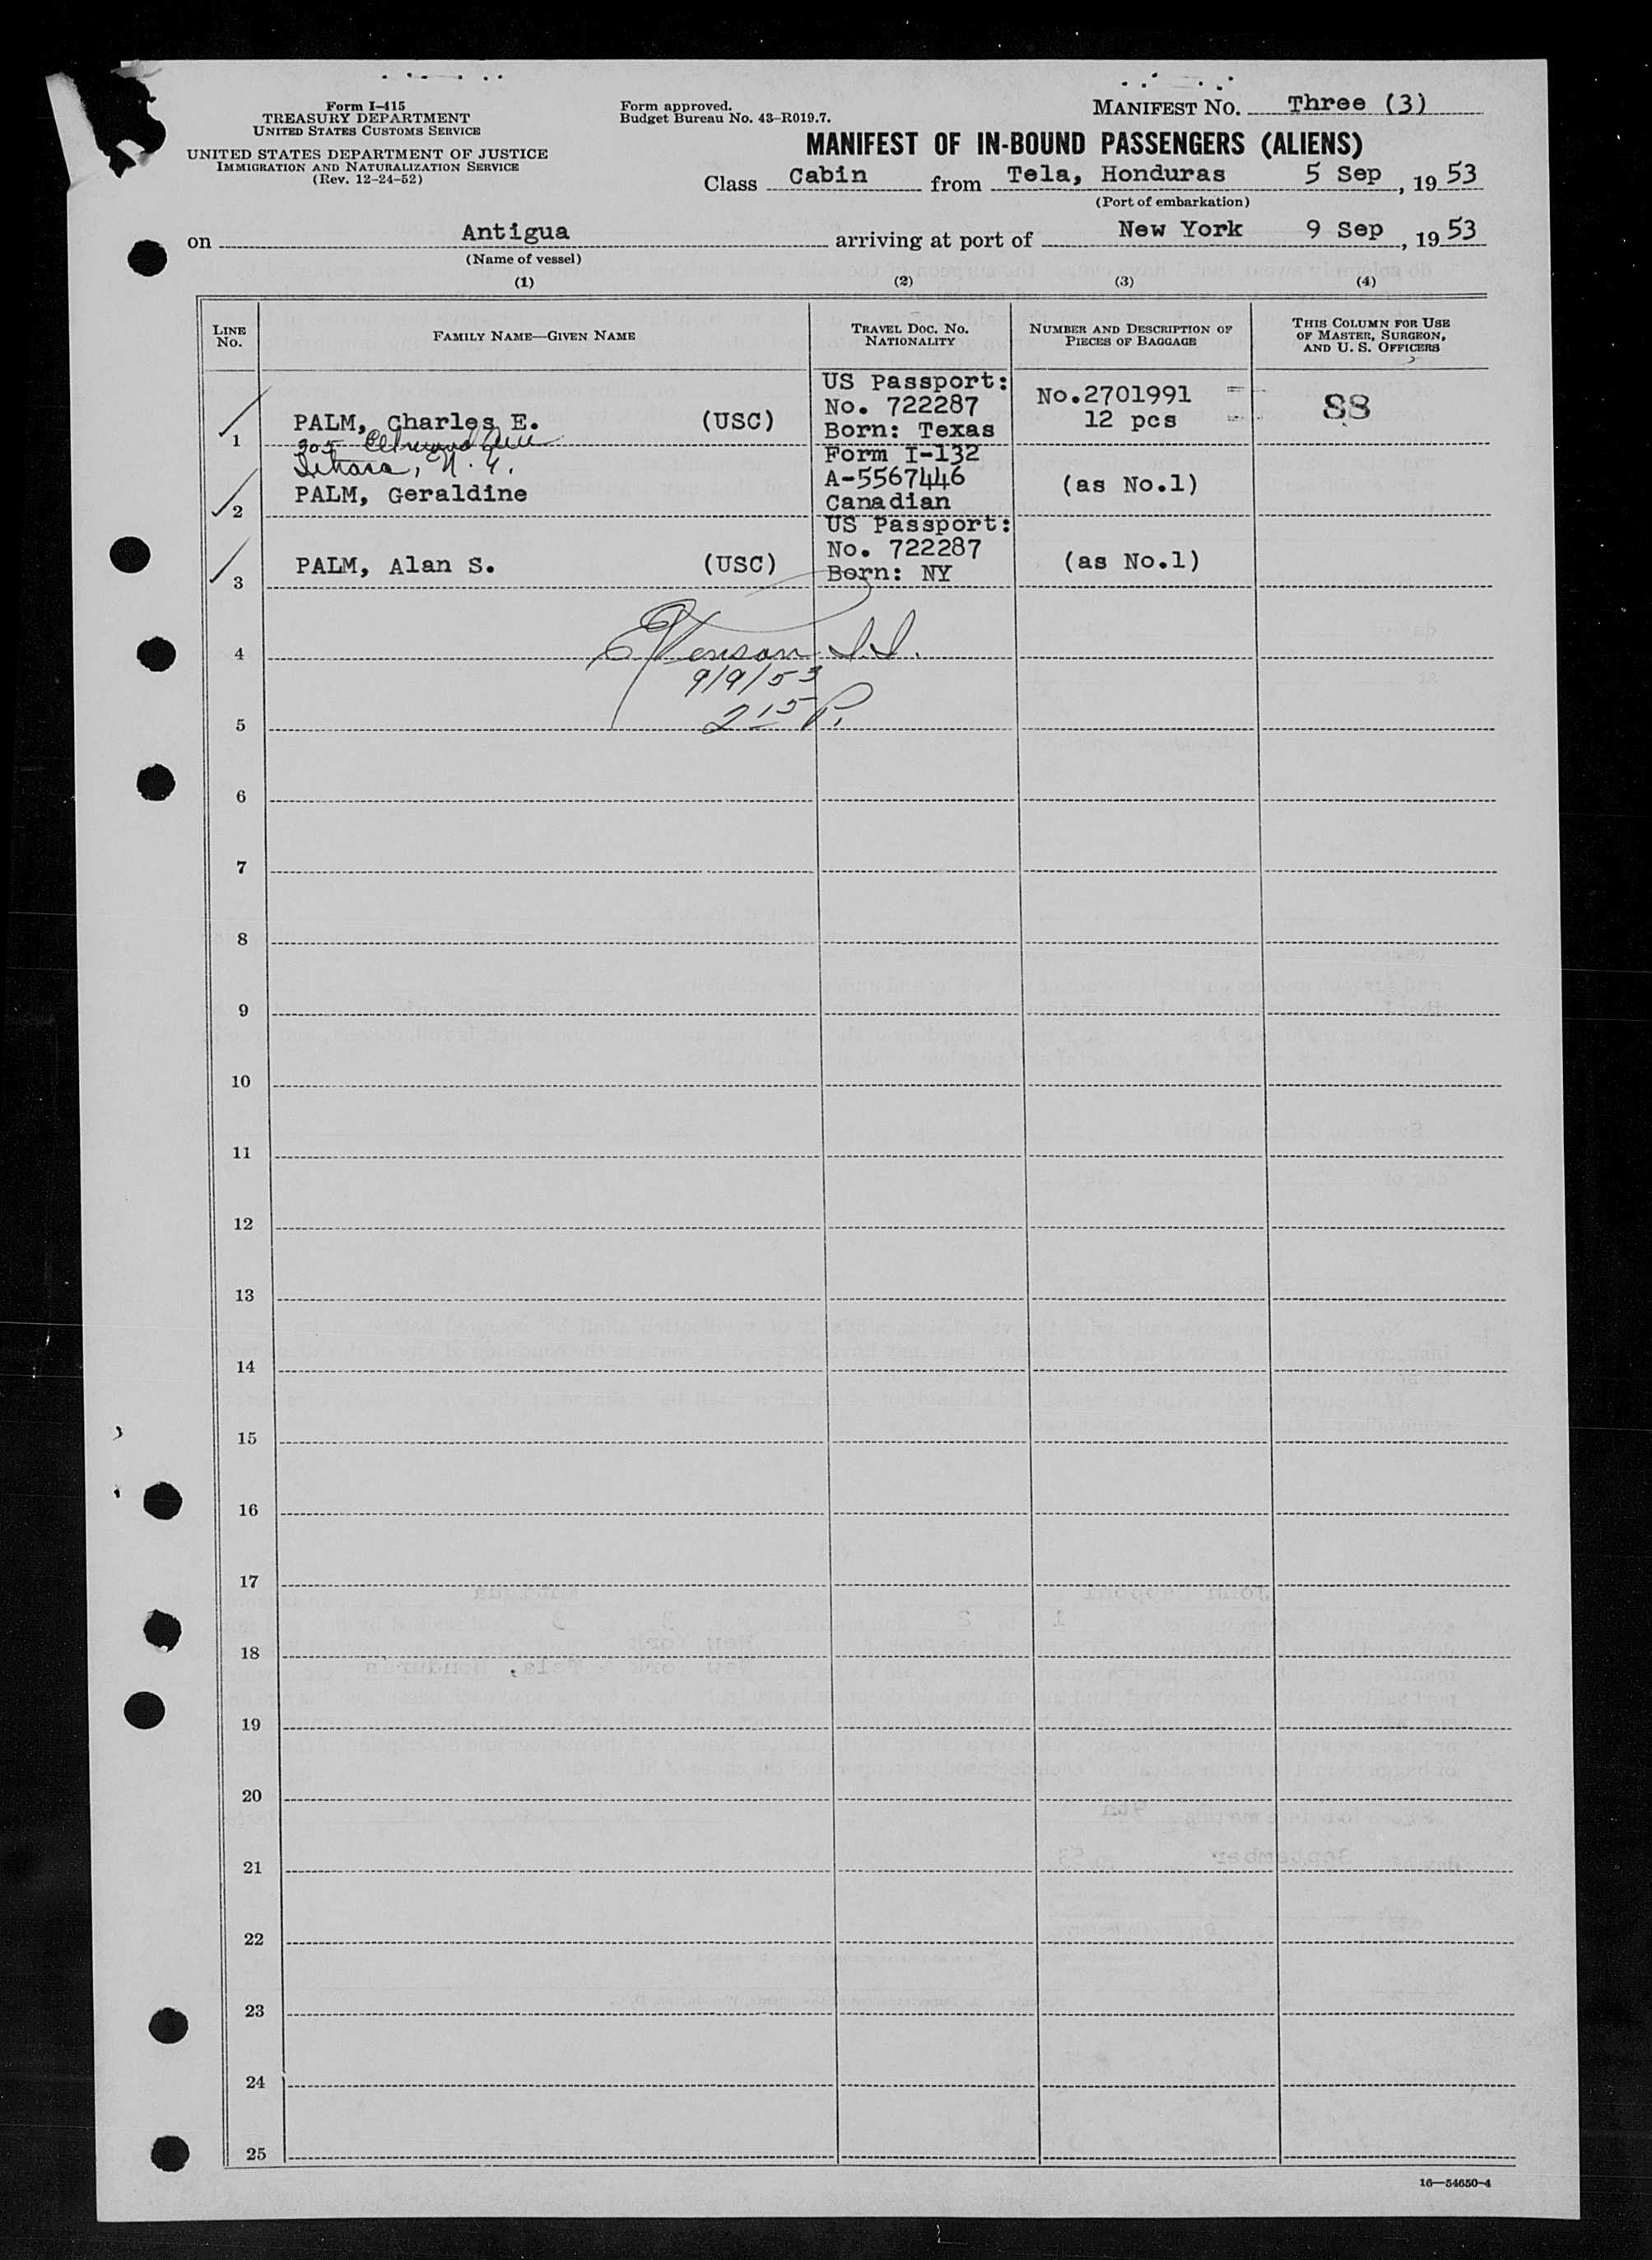 Form I-415
TREASURY DEPARTMENT
UNITED STATES CUSTOMS SERVICE
UNITED STATES DEPARTMENT OF JUSTICE
IMMIGRATION AND NATURALIZATION SERVICE
(Rev. 12-24-52)
Form approved.
Budget Bureau No. 43-R019.7.
MANIFEST NO. Three (3)
MANIFEST OF IN-BOUND PASSENGERS (ALIENS)
Class Cabin from Tela, Honduras 5 Sep, 19 53
(Port of embarkation)
on Antigua arriving at port of New York 9 Sep, 19 53
(Name of vessel)
(1) (2) (3) (4)
LINE No.
FAMILY NAME—GIVEN NAME
TRAVEL DOC. NO. NATIONALITY
NUMBER AND DESCRIPTION OF PIECES OF BAGGAGE
THIS COLUMN FOR USE OF MASTER, SURGEON, AND U. S. OFFICERS
1 PALM, Charles E. (USC)
US Passport:
No. 722287
Born: Texas
No.2701991
12 pcs
88
305
Ithaca, N. Y.
2 PALM, Geraldine
Form I-132
A-5567446
Canadian
(as No.1)
3 PALM, Alan S. (USC)
US Passport:
No. 722287
Born: NY
(as No.1)
4
9/9/53
2 15 P.
5
6
7
8
9
10
11
12
13
14
15
16
17
18
19
20
21
22
23
24
25
16—54650-4